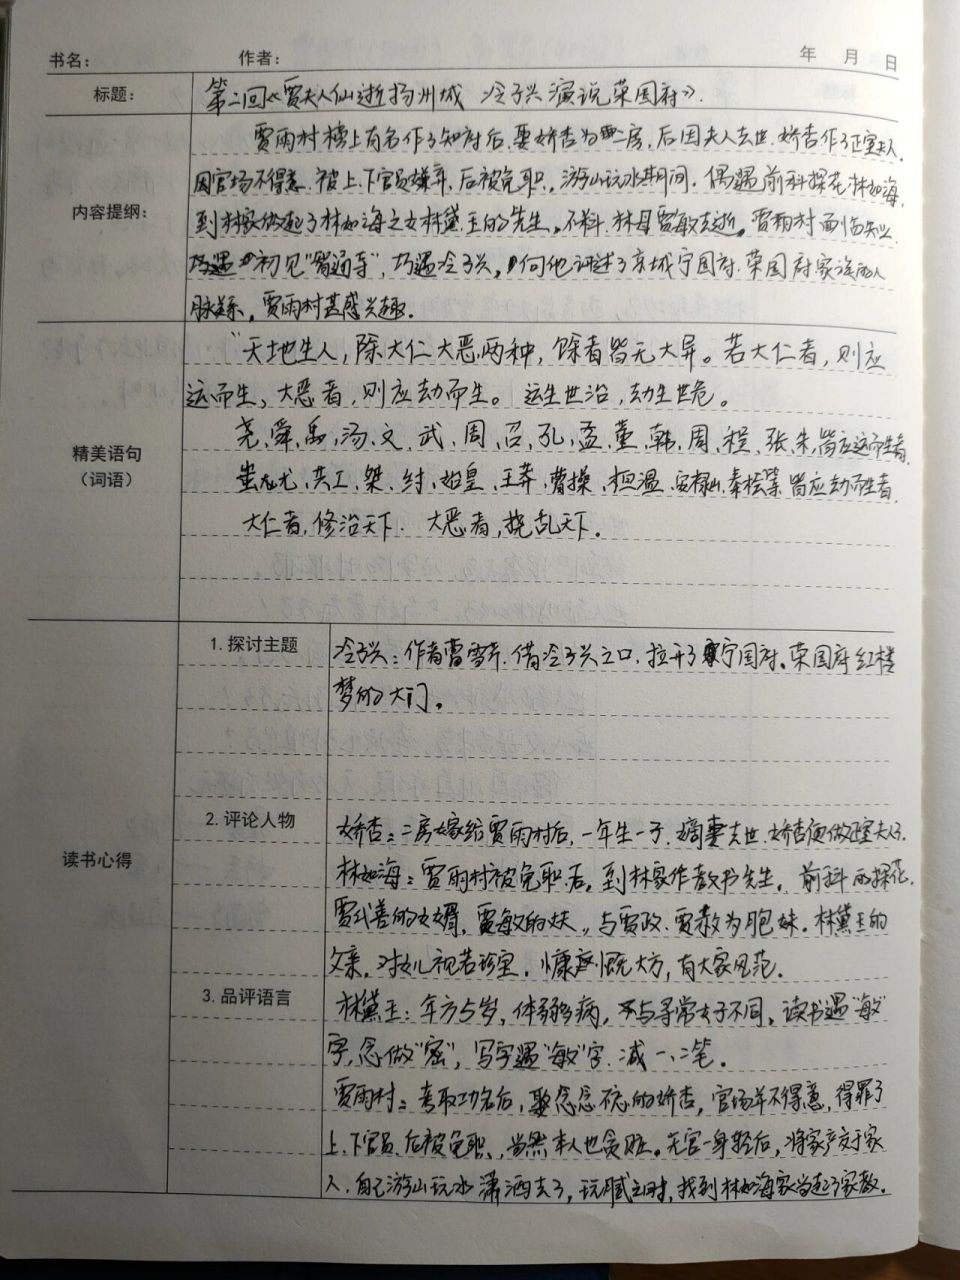 书名： 作者： 年 月 日
标题： 第二回《贾夫人仙逝扬州城 冷子兴演说荣国府》.
内容提纲：
贾雨村榜上有名作了知府后,娶娇杏为二房,后因夫人去世,娇杏作了正室夫人.
因官场不得意,被上、下官员嫌弃,后被免职,游山玩水期间,偶遇前科探花林如海,
到林家做起了林如海之女林黛玉的先生。不料林母贾敏去逝,贾雨村面临失业.
巧遇 初见"智通寺",巧遇冷子兴,向他讲述了京城宁国府.荣国府家族的人
脉关系,贾雨村甚感兴趣.
精美语句
（词语）
"天地生人,除大仁大恶两种,馀者皆无大异。若大仁者,则应
运而生,大恶者,则应劫而生。运生世治,劫生世危。
尧、舜、禹、汤、文、武、周、召、孔、孟、董、韩、周、程、张、朱,皆应运而生者.
蚩尤、共工、桀、纣、始皇、王莽、曹操、桓温、安禄山、秦桧等,皆应劫而生者.
大仁者,修治天下.大恶者,挠乱天下。
读书心得
1. 探讨主题
冷子兴：作者曹雪芹.借冷子兴之口.拉开了宁国府、荣国府红楼
梦的大门。
2. 评论人物
娇杏：二房嫁给贾雨村后,一年生一子.嫡妻去世.娇杏便做正室夫人了.
林如海：贾雨村被免职后,到林家作教书先生。前科的探花.
贾代善的女婿,贾敏的丈夫,与贾政.贾赦为胞妹.林黛玉的
父亲,对女儿视若珍宝,慷慨大方,有大家风范.
3. 品评语言
林黛玉：年方5岁,体弱多病,与寻常女子不同,读书遇"敏"
字,念做"密",写字遇"敏"字.减一、二笔.
贾雨村：考取功名后,娶念念不忘的娇杏,官场并不得意,得罪了
上、下官员,后被免职、当然本人也贪赃。无官一身轻后,将家产交于家
人.自己游山玩水潇洒去了,玩腻之时,找到林如海家当起了家教.